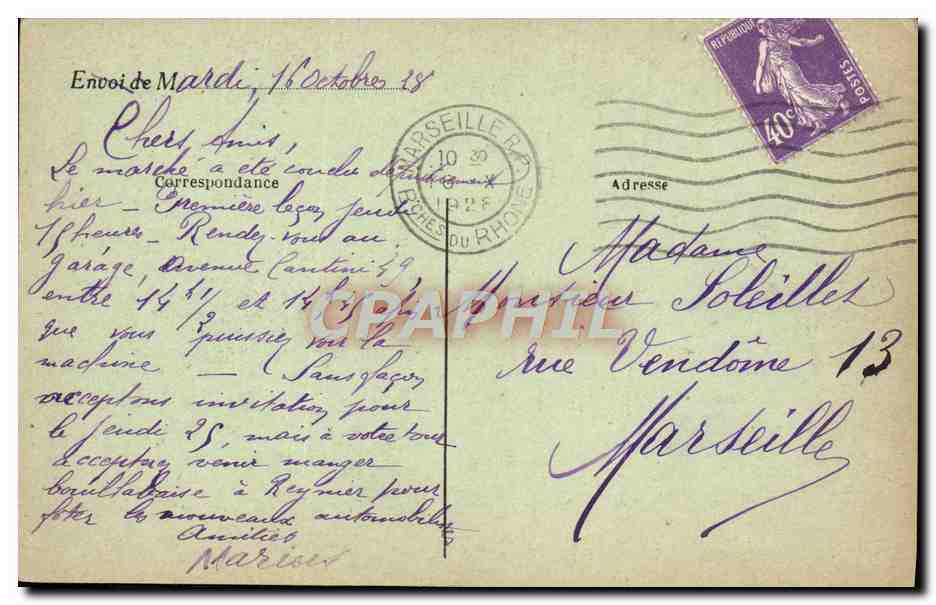 Envoi de Mardi, 16 Octobre 28
Chers Amis,
Le marché a été conclu définitivement
Correspondance
hier — Première leçon jeudi
15 heures — Rendez-vous au
garage, avenue Cantini 49
entre 14 h 1/2 et 14 h 3/4 afin
que vous puissiez voir la
machine — Sans façon
acceptons invitation pour
le jeudi 25, mais à votre tour
acceptez venir manger
bouillabaise à Reynier pour
fêter les nouveaux automobilistes
Amitiés
Marius
MARSEILLE R.P.
10 30
16 X
1928
BCHES DU RHONE
REPUBLIQUE
POSTES
40c
Adresse
Madame
Monsieur Soleillet
rue Vendôme 13
Marseille
CPAPHIL